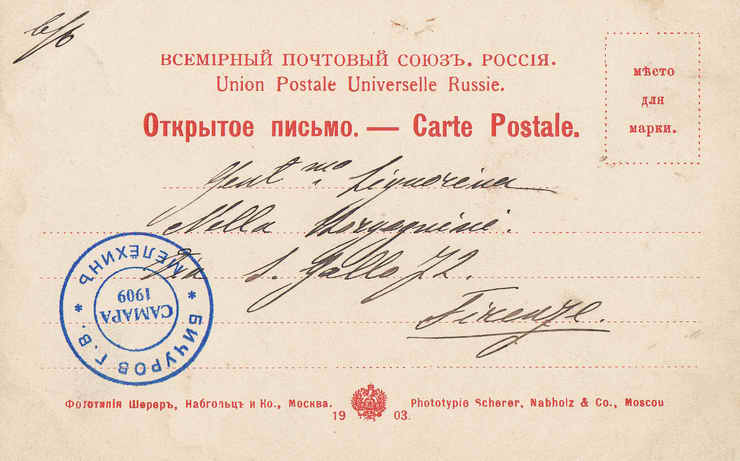 ВСЕМІРНЫЙ ПОЧТОВЫЙ СОЮЗЪ. РОССІЯ.
Union Postale Universelle Russie.
Открытое письмо. — Carte Postale.
мѣсто
для
марки.
Gent.mo Signorina
Nella Morgagnini.
Via S. Gallo 72.
Firenze.
* БИЧУРОВ Г.В. * МЕЛЕХИНЪ
САМАРА
1909
Фототипія Шереръ, Набгольцъ и Ко., Москва. 1903. Phototypie Scherer, Nabholz & Co., Moscou